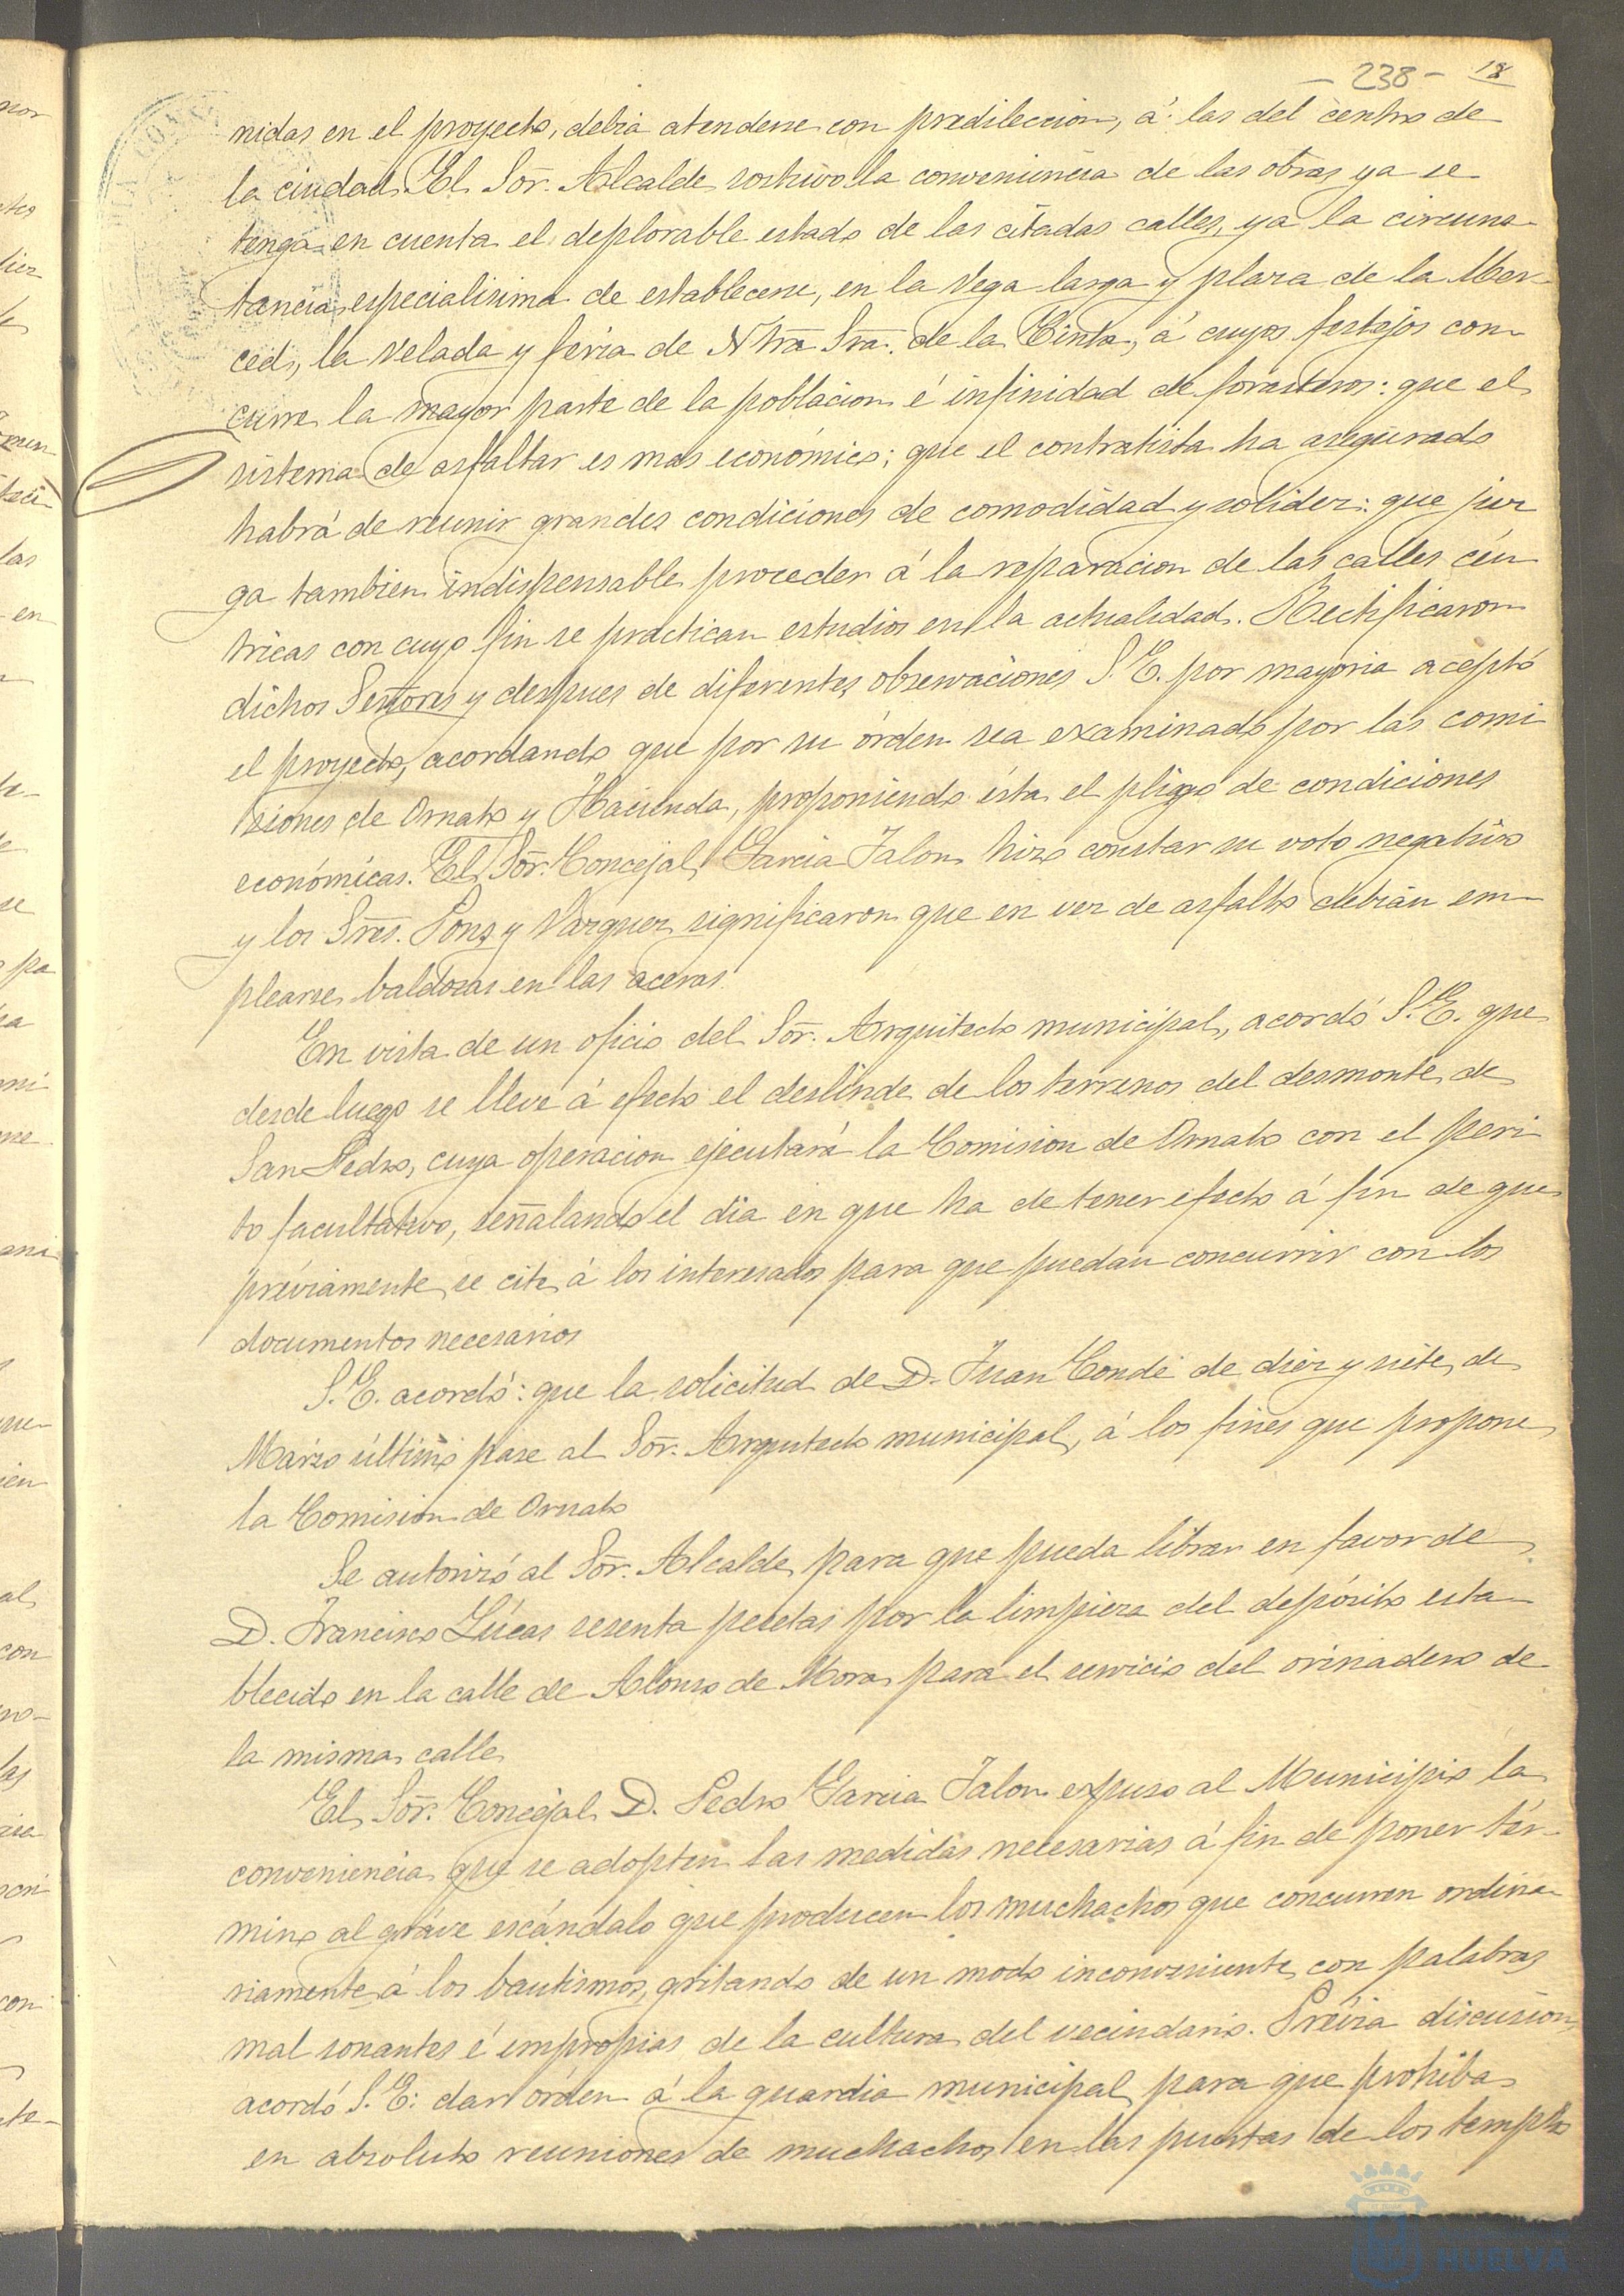 - 238 - 18
nidas en el proyecto, debia atenderse con predileccion, á las del centro de
la ciudad. El Sor. Alcalde sostuvo la conveniencia de las obras ya se
tenga en cuenta el deplorable estado de las citadas calles, ya la circuns-
tancia especialisima de establecerse, en la Vega larga y plaza de la Mer-
ced, la Velada y feria de Ntra Sra. de la Cinta, á cuyos festejos con-
curre la mayor parte de la poblacion é infinidad de forasteros: que el
sistema de asfaltar es mas económico; que el contratista ha asegurado
habrá de reunir grandes condiciones de comodidad y solidez: que juz
ga tambien indispensable proceder á la reparacion de las calles cén
tricas con cuyo fin se practican estudios en la actualidad. Rectificaron
dichos Señores y despues de diferentes observaciones S. E. por mayoria aceptó
el proyecto, acordando que por su órden sea examinado por las comi
siones de Ornato y Hacienda, proponiendo ésta el pliego de condiciones
económicas. El Sor. Concejal Garcia Jalon hizo constar su voto negativo
y los Sres. Pons y Vazquez significaron que en vez de asfalto debian em-
plearse baldosas en las aceras.
En vista de un oficio del Sor. Arquitecto municipal, acordó S. E. que
desde luego se lleve á efecto el deslinde de los terrenos del desmonte de
San Pedro, cuya operacion ejecutará la Comision de Ornato con el peri
to facultativo, señalando el dia en que ha de tener efecto á fin de que
préviamente se cite á los interesados para que puedan concurrir con los
documentos necesarios
S. E. acordó: que la solicitud de D. Juan Conde de diez y siete de
Marzo último pase al Sor. Arquitecto municipal, á los fines que propone
la Comision de Ornato
Se autorizó al Sor. Alcalde para que pueda librar en favor de
D. Francisco Lúcas sesenta pesetas por la limpieza del depósito esta-
blecido en la calle de Alonso de Mora para el servicio del orinadero de
la misma calle
El Sor. Concejal D. Pedro Garcia Jalon expuso al Municipio la
conveniencia que se adopten las medidas necesarias á fin de poner tér-
mino al gráve escándalo que producen los muchachos que concurren ordina-
riamente á los bautismos, gritando de un modo inconveniente con palabras
mal sonantes é impropias de la cultura del vecindario. Prévia discusion
acordó S. E: dar órden á la guardia municipal para que prohiba
en absoluto reuniones de muchachos en las puertas de los templos
HUELVA